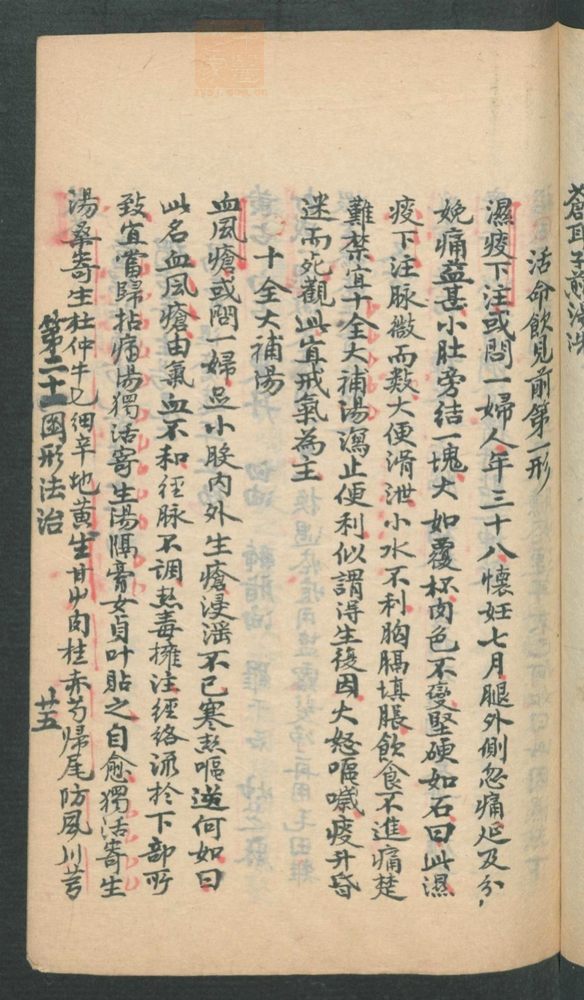 蒼耳子煎湯洗
活命飲見前第一形
濕痰下注或問一婦人年三十八懷妊七月腿外側忽痛延及分
娩痛益甚小肚旁結一塊大如覆杯肉色不變堅硬如石曰此濕
痰下注脉微而数大便滑泄小水不利胸膈填脹飲食不進痛楚
難禁宜十全大補湯瀉止便利似謂得生後因大怒嘔噦痰升昏
迷而死觀此宜戒氣為主
十全大補湯
血风瘡或問一婦足小股内外生瘡浸滛不已寒热嘔逆何如曰
此名血风瘡由氣血不和徑脉不调热毒擁注經絡流於下部所
致宜當歸拈痛湯獨活寄生湯隔膏女貞叶貼之自愈獨活寄生
湯桑寄生杜仲牛七细辛地黄生甘艸肉桂赤芍歸尾防风川芎
第二十一图形法治
廿五